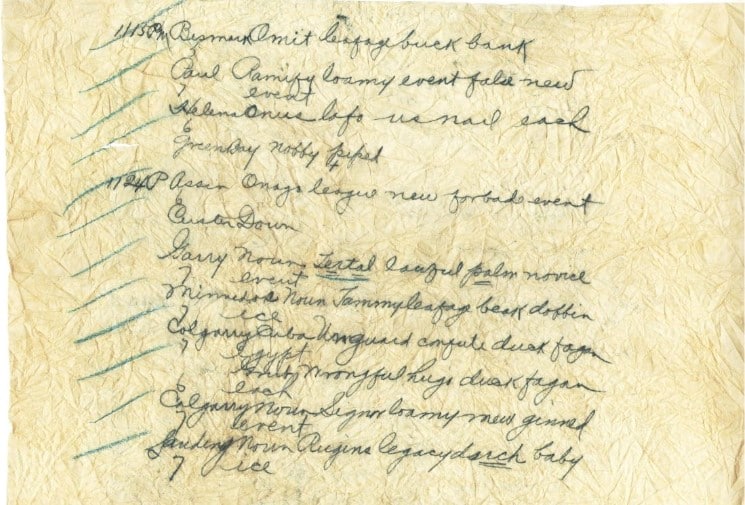 1113PM Bismark Omit leafage buck bank
Paul Ramify loamy event false new
7 event
Helena Onus lofo us nail each
6
Greenbay nobby peped
1124P Assin Onago league new forbade event
Custer Down
Garry Noun Tertal lawful palm novice
7 event
Minnedos Noun Jammyleafage beak dobbin
7 ice
Calgarry Cuba Unguard confute duck fagan
7 Egypt
Wrongful hugo duck fagan
each
Calgarry Noun Signor loamy new ginned
7 event
Landing Noun Rugins legacy baby
7 ice